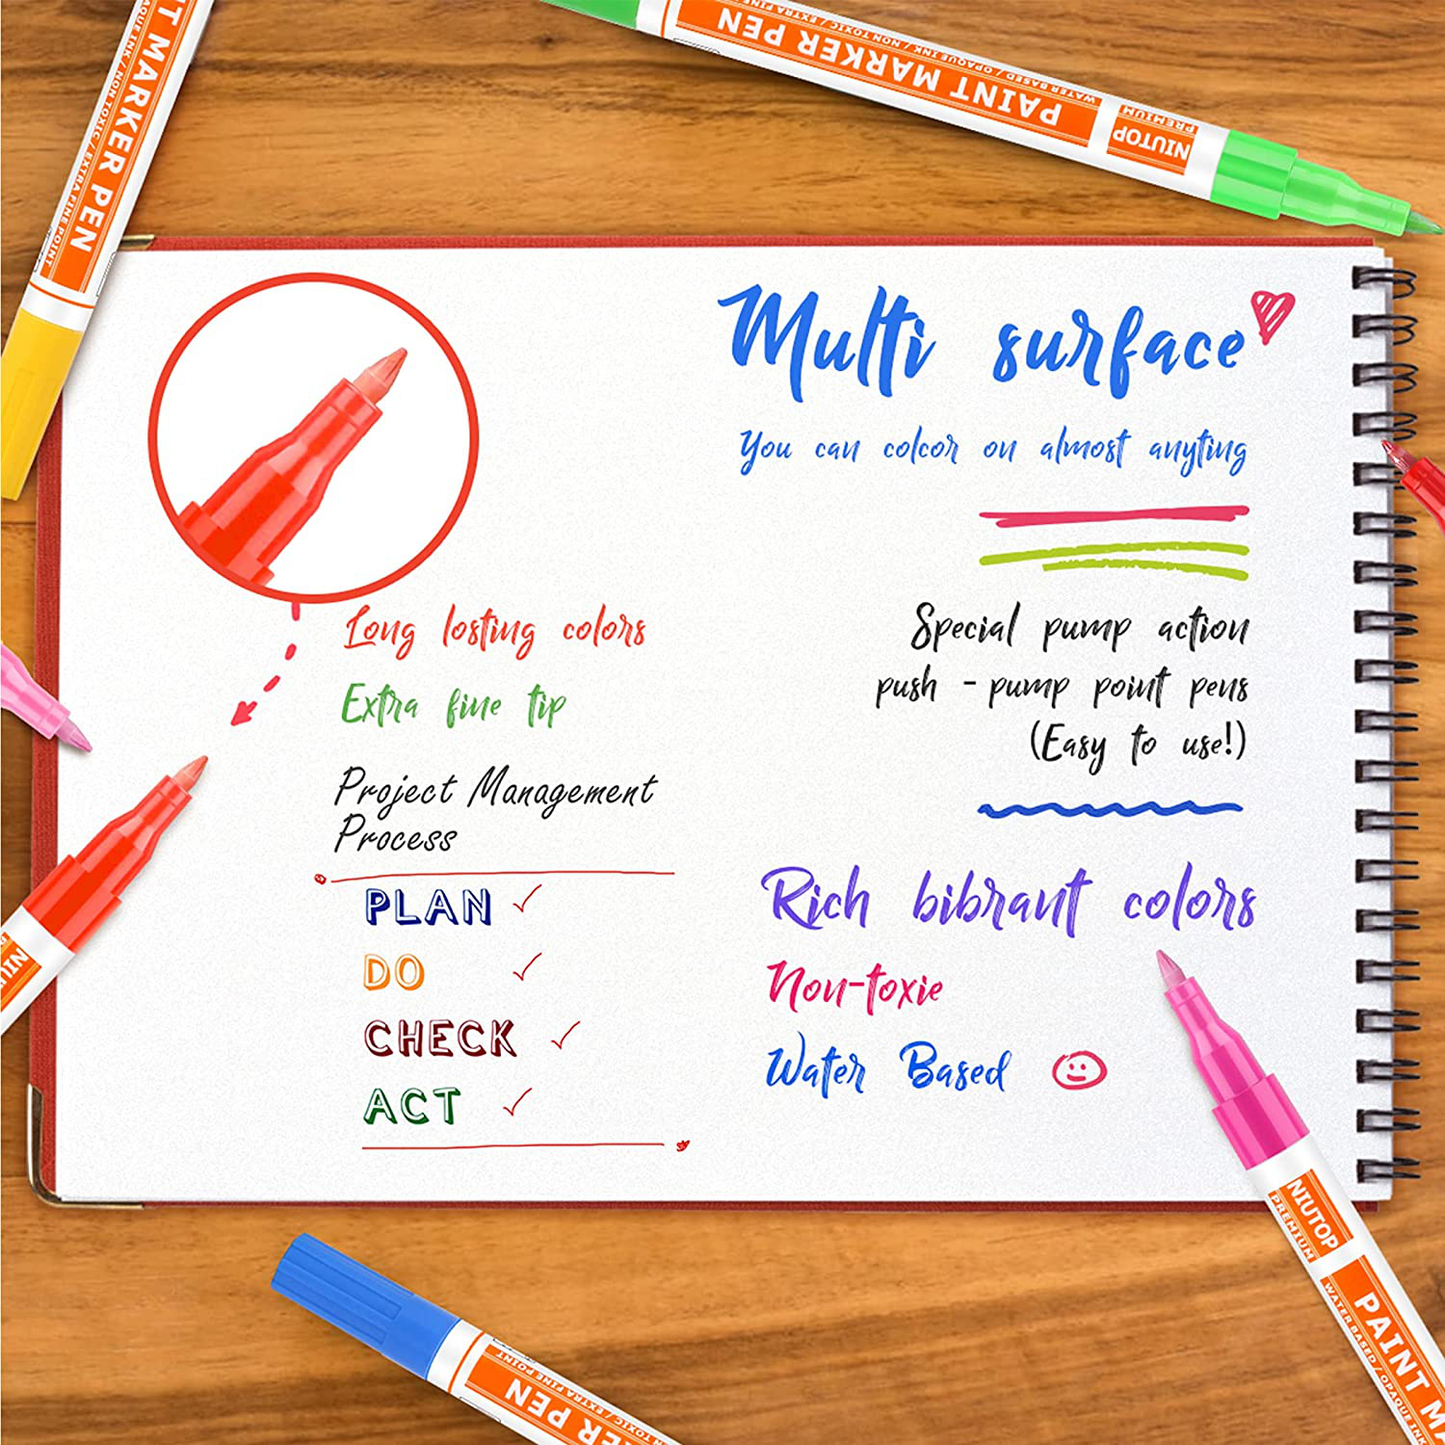 T MARKER PEN
AQUE INK / NON TOXIC / EXTRA FINE POINT
PAINT MARKER PEN
WATER BASED / OPAQUE INK / NON TOXIC / EXTRA FINE
NIUTOP
PREMIUM
Multi surface
You can colcor on almost anyting
Special pump action
push - pump point pens
(Easy to use!)
Long losting colors
Extra fine tip
Project Management
Process
PLAN
DO
CHECK
ACT
Rich bibrant colors
Non-toxie
Water Based
NIU
NIUTOP
PREMIUM
PAINT MA
WATER BASED / OPAQUE INK
RKER PEN
TOXIC / EXTRA FINE POINT